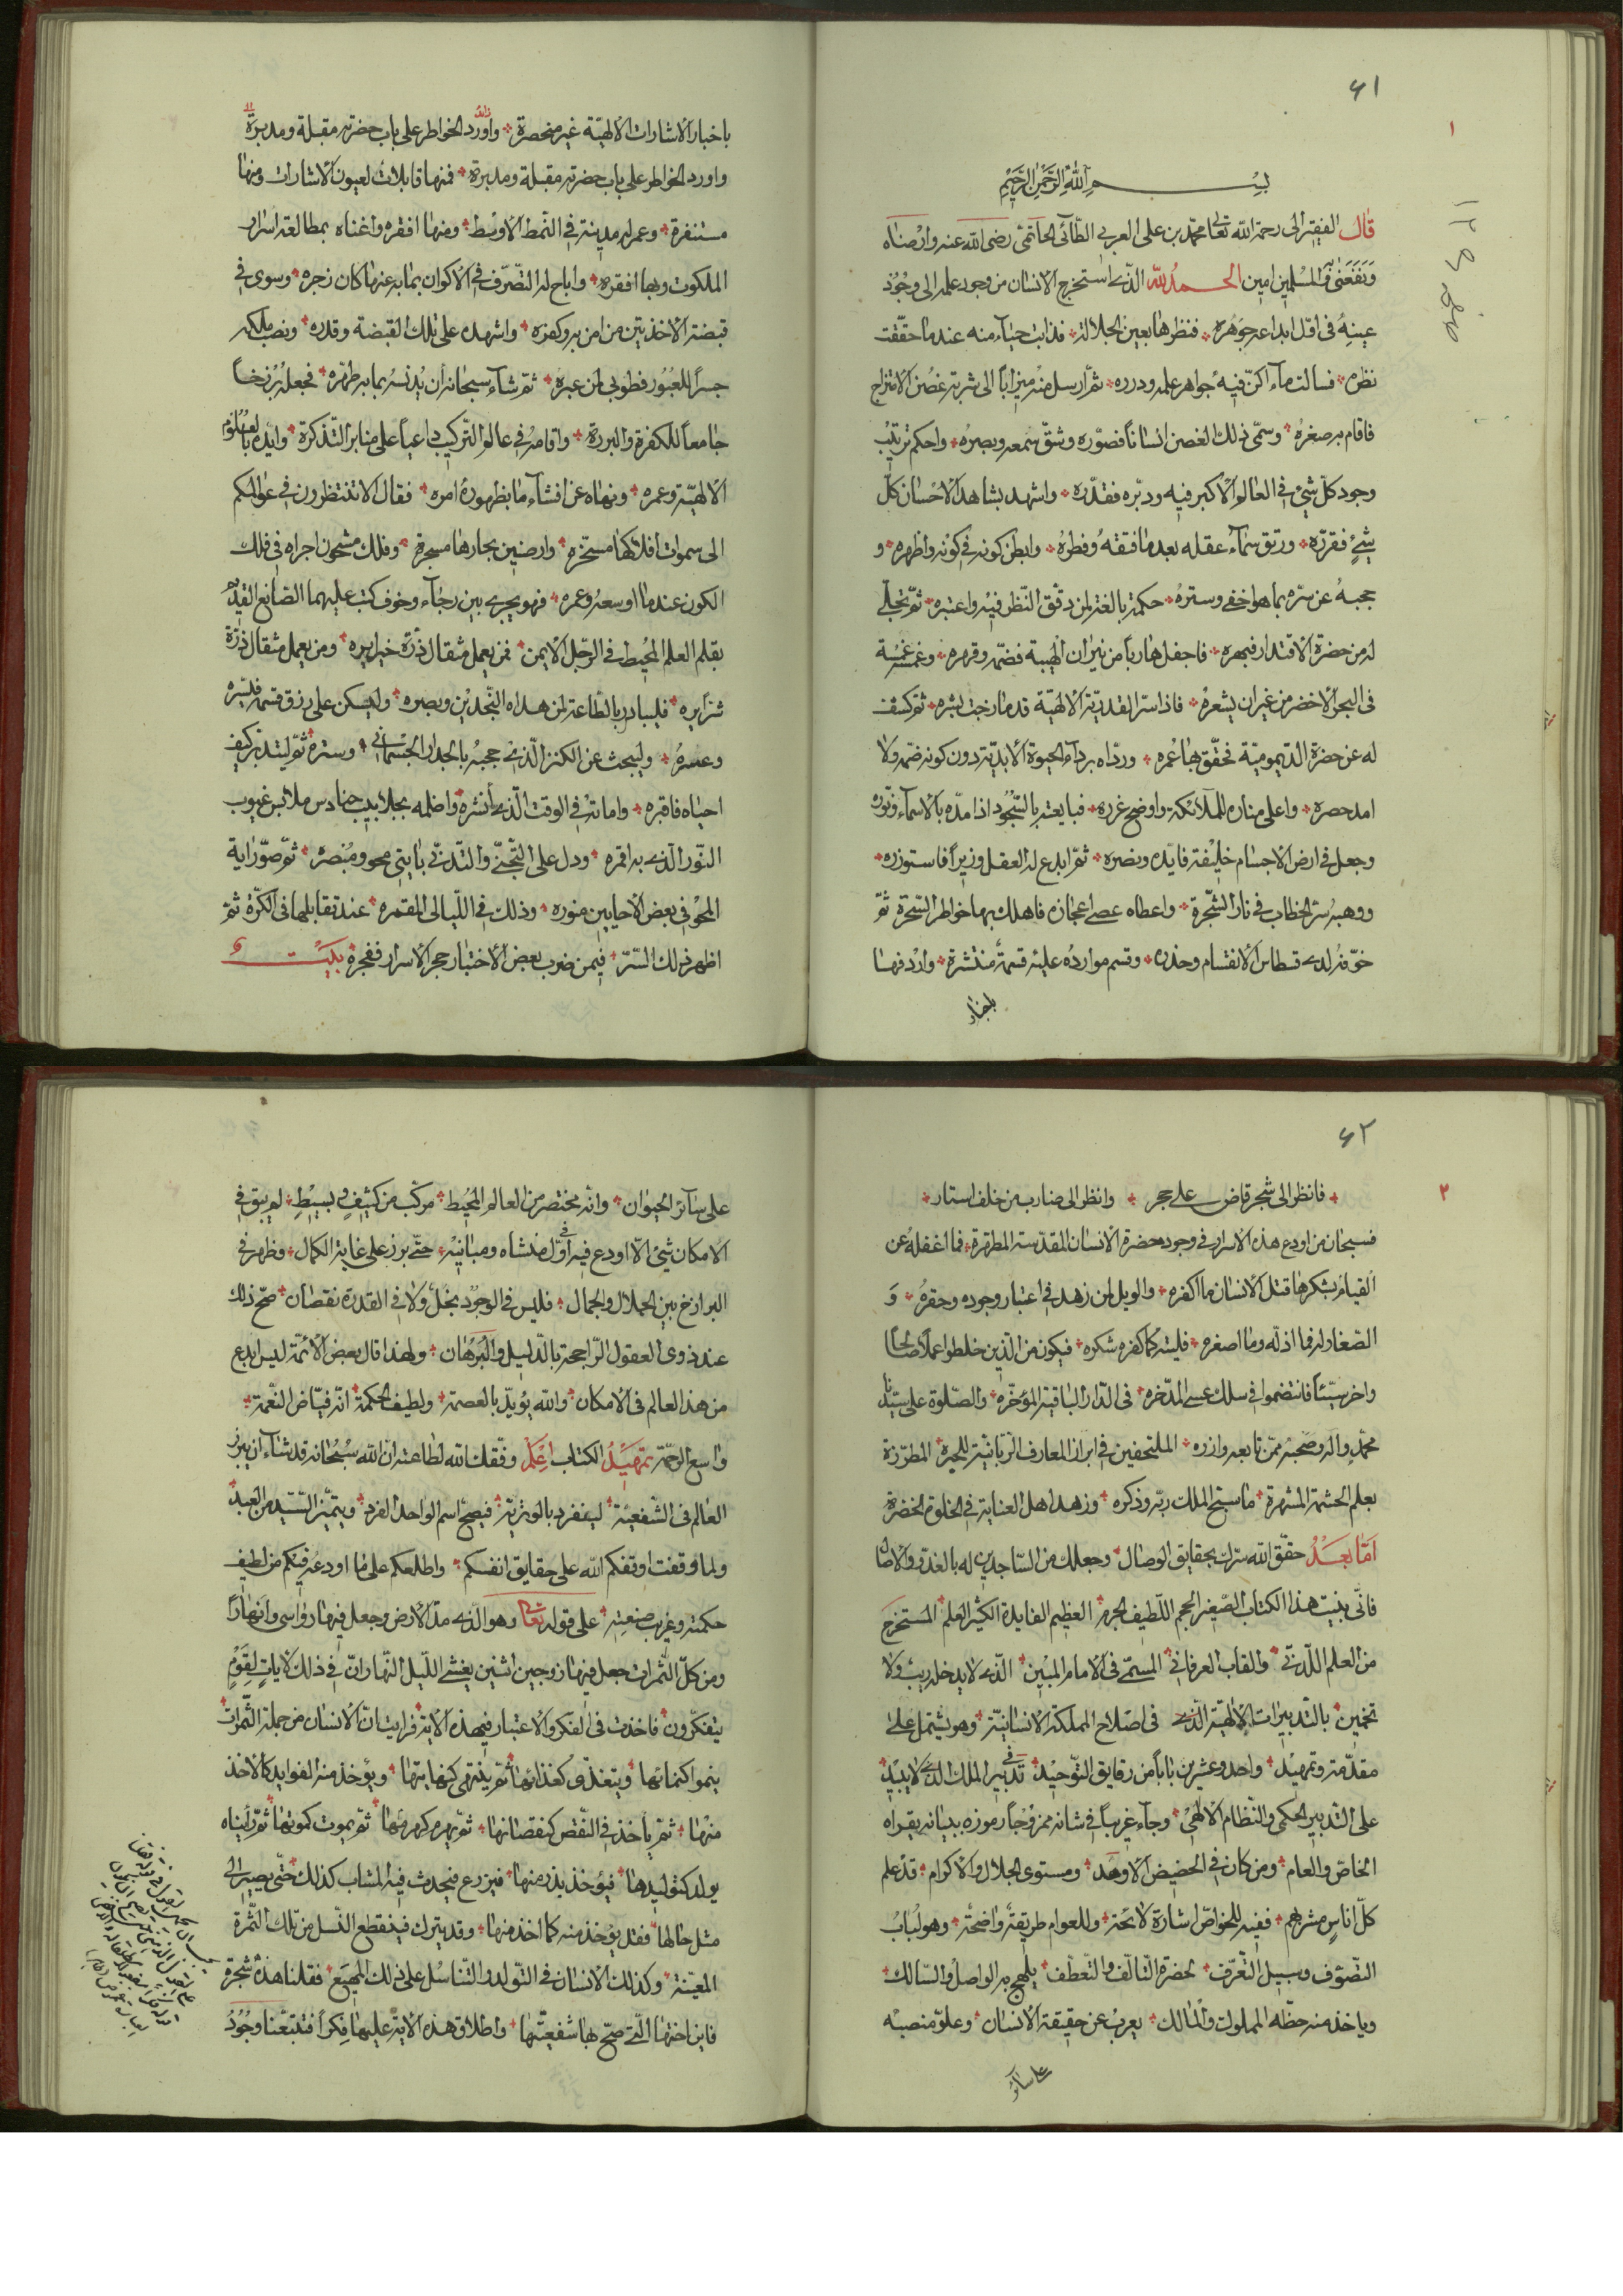 ٤١
١
بسم الله الرحمن الرحيم
قال الفقير الى رحمة الله تعالى محمد بن على العربى الطائى الحاتمى رضى الله عنه وارضاه
ونفعنى والمسلمين امين الحمد لله الذى استخرج الانسان من وجود علمه الى وجود
عينه فى اول ابداعه جوهره فنظرها بعين الجلالة فذابت حياء منه عندما حققت
نظره فسالت ماء اكن فيه جواهر علمه ودرره ثم ارسل منه ميزاباً الى شربة غصن الامتزاج
فاقام به صغره وسمى ذلك الغصن انساناً فصوره وشق سمعه وبصره واحكم ترتيب
وجود كل شئ فى العالم الاكبر فيه ودبره فقدره واشهد بشاهد الاحسان كل
شئ فقرره ورتق سماء عقله بعد ما فتقه وفطره وابطن كونه فى كونه واظهره و
حجبه عن سره بما هو اخفى وستره حكمة بالغة لمن دقق النظر فيه واعتبره ثم تجلى
له من حضرة الاقتدار فبهره فاجفل هارباً من نيران الهيبة فضمه وقهره وغمسه غمسة
فى البحر الاخضر من غير ان يشعره فاذا سر القدرية الالهية قد مازجت بشره ثم كشف
له عن حضرة الديمومية فحقق بها عمره ورداه برداء الحيوة الابدية دون كونه ضمه ولا
امد حصره واعلى مناره للملائكة واوضح غرره فبايعته بالسجود اذ امده بالاسماء ونوره
وجعل فى ارض الاجسام خليفة فايده ونصره ثم ابدع له العقل وزيراً فاستوزره
ووهبه سر الخطاب فى نار الشجرة واعطاه عصى اعجازه فاهلك بها خواطر السحرة ثم
خوفه لدى قسطاس الانقسام وحذره وقسم موارده عليه قسمة منتشرة واردفها
باخبار
باخبار الاشارات الالهية غير منحصرة واورد الخواطر على باب حضرته مقبلة ومدبرة
واورد الخواطر على باب حضرته مقبلة ومدبرة فمنها قابلات لعيون الاشارات ومنها
مستنفرة وعمر له مدينة فى النمط الاوسط ومنها افقره واغناه بمطالعة اسرار
الملكوت وبها افقره واباح له التصرف فى الاكوان بما به عنها كان زجره وسوى فى
قبضته الاخذ بين من امن به وكفره واشهده على تلك القبضة وقدره ونصب ملكه
جسراً للعبور فطوبى لمن عبره ثم شاء سبحانه ان يدنسه بما به طهره فجعله برزخاً
جامعاً للكفرة والبررة واقامه فى عالم التركيب داعياً على منابر التذكرة وايده بالعلوم
الالهية وعمره ونهاه عن افشاء ما بظهوره امره فقال الا تنتظرون فى عوالمكم
الى سموات افلاكها مسخره وارضين بحارها مسجرة وفلك مشحون اجراه فى فلك
الكون عندما اوسعه وعمره فهو يجرى بين رجاء وخوف كتب عليهما الصانع القديم
بقلم العلم المحيط فى الرجل الايمن فمن يعمل مثقال ذرة خيرا يره ومن يعمل مثقال ذرة
شراً يره فليبادر بالطاعة لمن هداه النجدين وبصره وليسكن على رزق قسمه فيسره
وعسره وليبحث عن الكنز الذى حجبه بالجدار الجسمانى وستره ثم ليتدبر كيف
احياه فاقبره واماته فى الوقت الذى انشره واظلمه بجلابيب حنادس ملابس غيوب
النور الذى به اقمره ودل على التجنى والتدنى بايتى محو ومبصرة ثم صور اية
المحو فى بعض الاحايين منوره وذلك فى الليالى المقمره عند تقابلهما فى الكرة ثم
اظهر ذلك السر فيمن ضرب بعض الاختبار حجر الاسرار ففجره بيت
٤٢
٢
فانظر الى شجر قاض على حجر وانظر الى ضارب من خلف استار
فسبحان من اودع هذه الاسرار فى وجوده حضرة الانسان المقدسة المطهرة فما اغفله عن
القيام بشكرها قتل الانسان ما اكفره والويل لمن زهد فى اعتبار وجوده وحقره و
الصغار له فما اذله وما اصغره فليته كما كفره شكره فيكون من الذين خلطوا عملا صالحاً
واخر سيئاً فانتضموا فى سلك عسى المدخره فى الدار الباقية المؤخره والصلوة على سيدنا
محمد واله وصحبه ممن تابعه وازره الملتحفين فى ابراز المعارف الربانية للحبرة المطرزة
بعلم الحشمة المشهرة ما سبح الملك ربه وذكره وزهد اهل العناية فى الخلوة الخضرة
اما بعد حقق الله سرك بحقايق الوصال وجعلك من الساجدين له بالغدو والاصال
فانى بنيت هذا الكتاب الصغير الحجم اللطيف الجرم العظيم الفايدة الكثير العلم المستخرج
من العلم اللدنى والقاب العرفانى المسمى فى الامام المبين الذى لا يدخله ريب ولا
تخمين بالتدبيرات الالهية الذى فى اصلاح المملكة الانسانية وهو يشتمل على
مقدمة وتمهيد واحد وعشرين باباً من رقايق التوحيد فى تدبير الملك الذى لا يبيد
على التدبير الحكمى والنظام الالهى وجاء غريباً فى شانه ممزوجاً رموزه ببيانه يقراه
الخاص والعام ومن كان فى الحضيض الاوهد ومستوى الجلال والاكرام قد علم
كل اناس مشربهم ففيه للخواص اشارة لائحة وللعوام طريقة واضحة وهو لباب
التصوف وسبيل التعرف لحضرة التالف والتعطف يلهج به الواصل والسالك
وياخذ منه حظه المملوك والمالك يعرب عن حقيقة الانسان وعلو منصبه
على سائر
على سائر الحيوان وانه مختصر من العالم المحيط مركب من كثيف وبسيط لم يبق فى
الامكان شئ الا اودع فيه فى اول منشاه ومبانيه حتى برز على غاية الكمال وظهر فى
البرازخ بين الجلال والجمال فليس فى الوجود بخل ولا فى القدرة نقصان صح ذلك
عند ذوى العقول الراجحة بالدليل والبرهان ولهذا قال بعض الائمة ليس ابدع
من هذا العالم فى الامكان والله يؤيد بالعصمة ولطيف الحكمة انه فياض النعمة
واسع الرحمة تمهيد الكتاب اعلم وفقك الله لطاعته ان الله سبحانه قد شاء ان يبرز
العالم فى الشفعية لينفرد بالوترية فيصح اسم الواحد الفرد ويتميز السيد من العبد
ولما وقفت اوقفكم الله على حقايق انفسكم واطلعكم على ما اودعه فيكم من لطيف
حكمته وغريب صنعته على قوله تعالى وهو الذى مد الارض وجعل فيها رواسى وانهاراً
ومن كل الثمرات جعل فيها زوجين اثنين يغشى الليل النهار ان فى ذلك لايات لقوم
يتفكرون فاخذت فى الفكر والاعتبار فى هذه الاية فرايت ان الانسان من جملة الثمرات
ينموا كنمائها ويتغذى كغذائها ثم ينتهى كنهايتها ويؤخذ منه الفوايد كالاخذ
منها ثم ياخذ فى النقص كنقصانها ثم يهرم كهرمها ثم يموت كموتها ثم رايناه
يولد كتوليدها فيؤخذ بذر منها فيزرع فيحدث فيه الشاب كذلك حتى يصير الى
مثل حالها فقد يؤخذ منه كما اخذ منها وقد يترك فينقطع النسل من تلك الثمرة
المعينة وكذلك الانسان فى التولد والتناسل على ذلك المهيع فقلنا هذه شجرة
فاين اختها التى صح بها شفعيتها واطلاق هذه الاية عليها فكراً فتتبعنا وجود